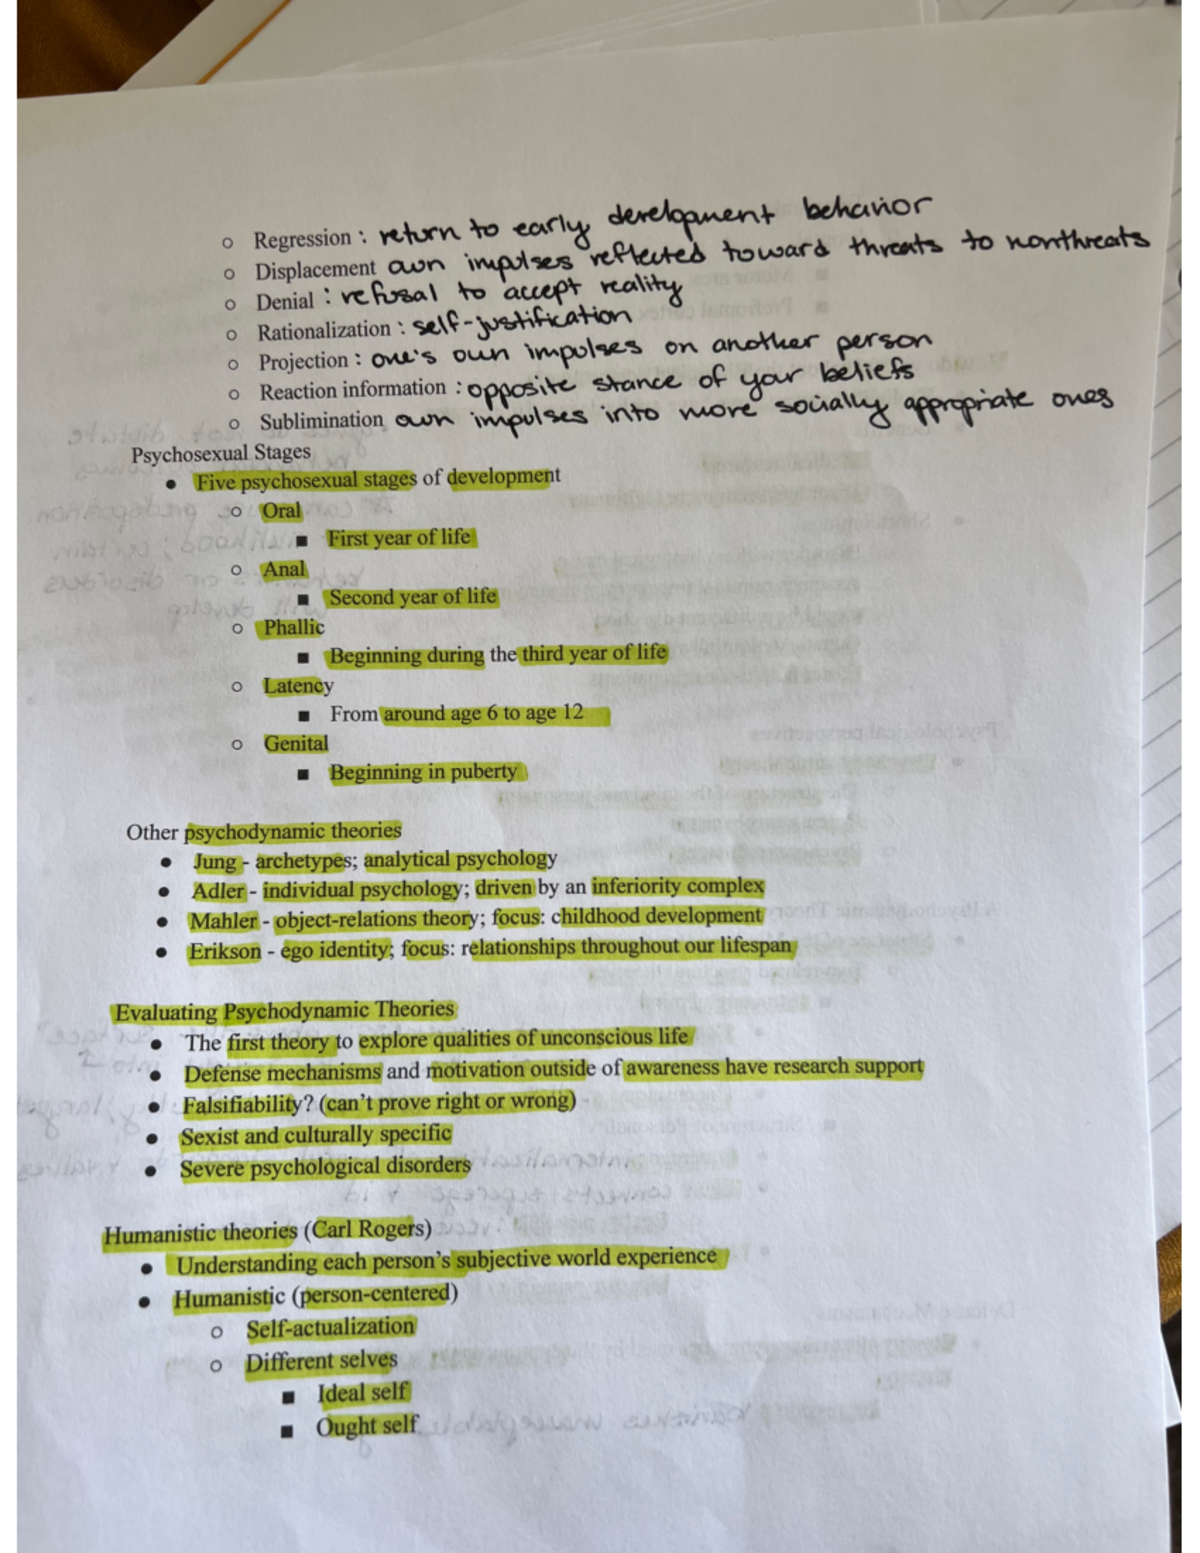 ○ Regression : return to early development behavior
○ Displacement own impulses reflected toward threats to nonthreats
○ Denial : refusal to accept reality
○ Rationalization : self-justification
○ Projection : one's own impulses on another person
○ Reaction information : opposite stance of your beliefs
○ Sublimination own impulses into more socially appropriate ones
Psychosexual Stages
● Five psychosexual stages of development
○ Oral
■ First year of life
○ Anal
■ Second year of life
○ Phallic
■ Beginning during the third year of life
○ Latency
■ From around age 6 to age 12
○ Genital
■ Beginning in puberty
Other psychodynamic theories
● Jung - archetypes; analytical psychology
● Adler - individual psychology; driven by an inferiority complex
● Mahler - object-relations theory; focus: childhood development
● Erikson - ego identity; focus: relationships throughout our lifespan
Evaluating Psychodynamic Theories
● The first theory to explore qualities of unconscious life
● Defense mechanisms and motivation outside of awareness have research support
● Falsifiability? (can't prove right or wrong)
● Sexist and culturally specific
● Severe psychological disorders
Humanistic theories (Carl Rogers)
● Understanding each person's subjective world experience
● Humanistic (person-centered)
○ Self-actualization
○ Different selves
■ Ideal self
■ Ought self